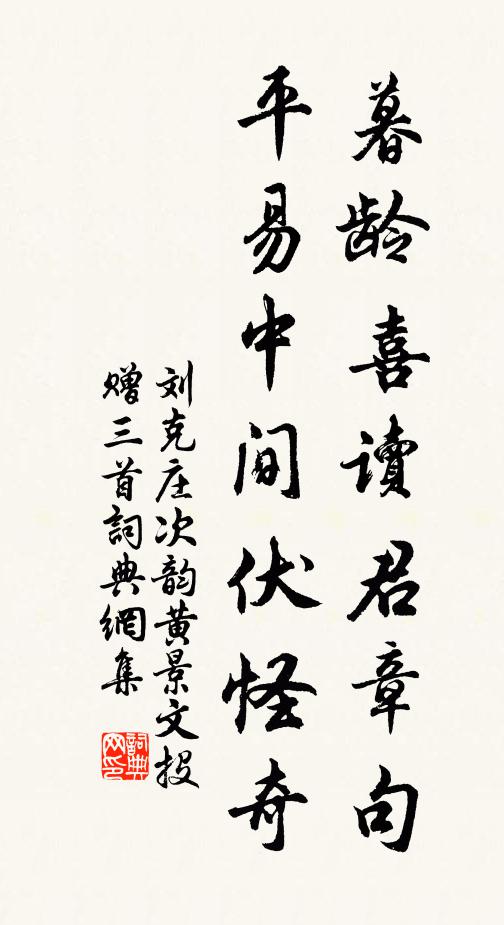 暮龄喜讀君章句
平易中间伏怪奇
刘克庄次韵黄景文投
赠三首詞典網集
詞典網印